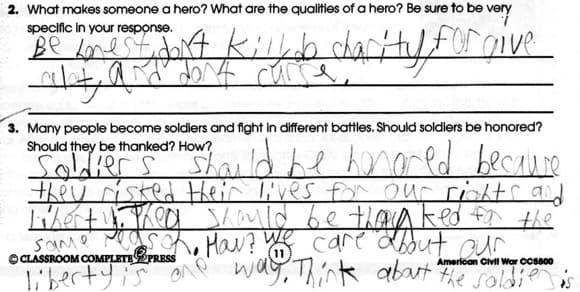 2. What makes someone a hero? What are the qualities of a hero? Be sure to be very
specific in your response.
Be honest, dont kill, do charity, forgive
alot, and dont curse.
3. Many people become soldiers and fight in different battles. Should soldiers be honored?
Should they be thanked? How?
Soldiers should be honored because
they risked their lives for our rights and
liberty. They should be thanked for the
same reason. How? We care about our
© CLASSROOM COMPLETE PRESS 11 American Civil War CC5500
liberty is one way. Think about the soldiers